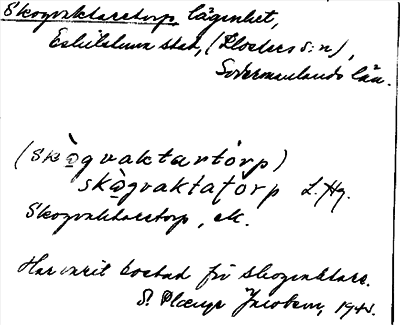 Skogvaktaretorp lägenhet,
Eskilstuna stad, (Klosters s:n),
Södermanlands län.
(skò̱gvaktartórp)
skò̱gvaktatórp L. Hg.
Skogvaktaretorp, ek.
Har varit bostad för skogvaktare.
1945.